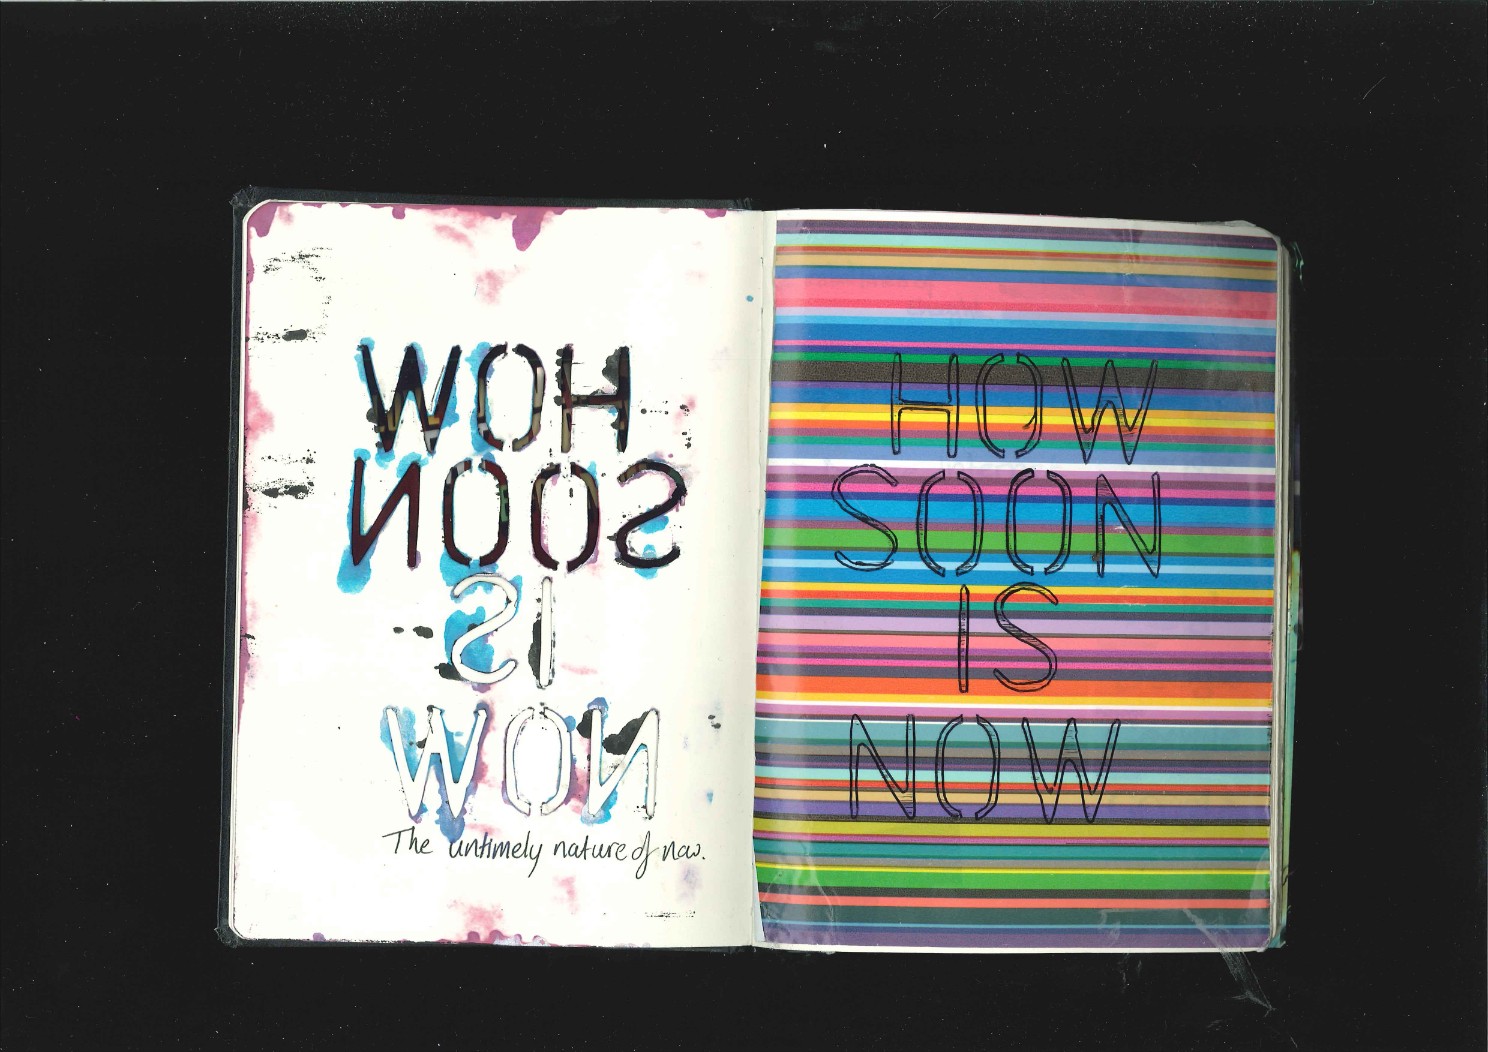 HOW
SOON
IS
NOW
The untimely nature of now.
HOW
SOON
IS
NOW